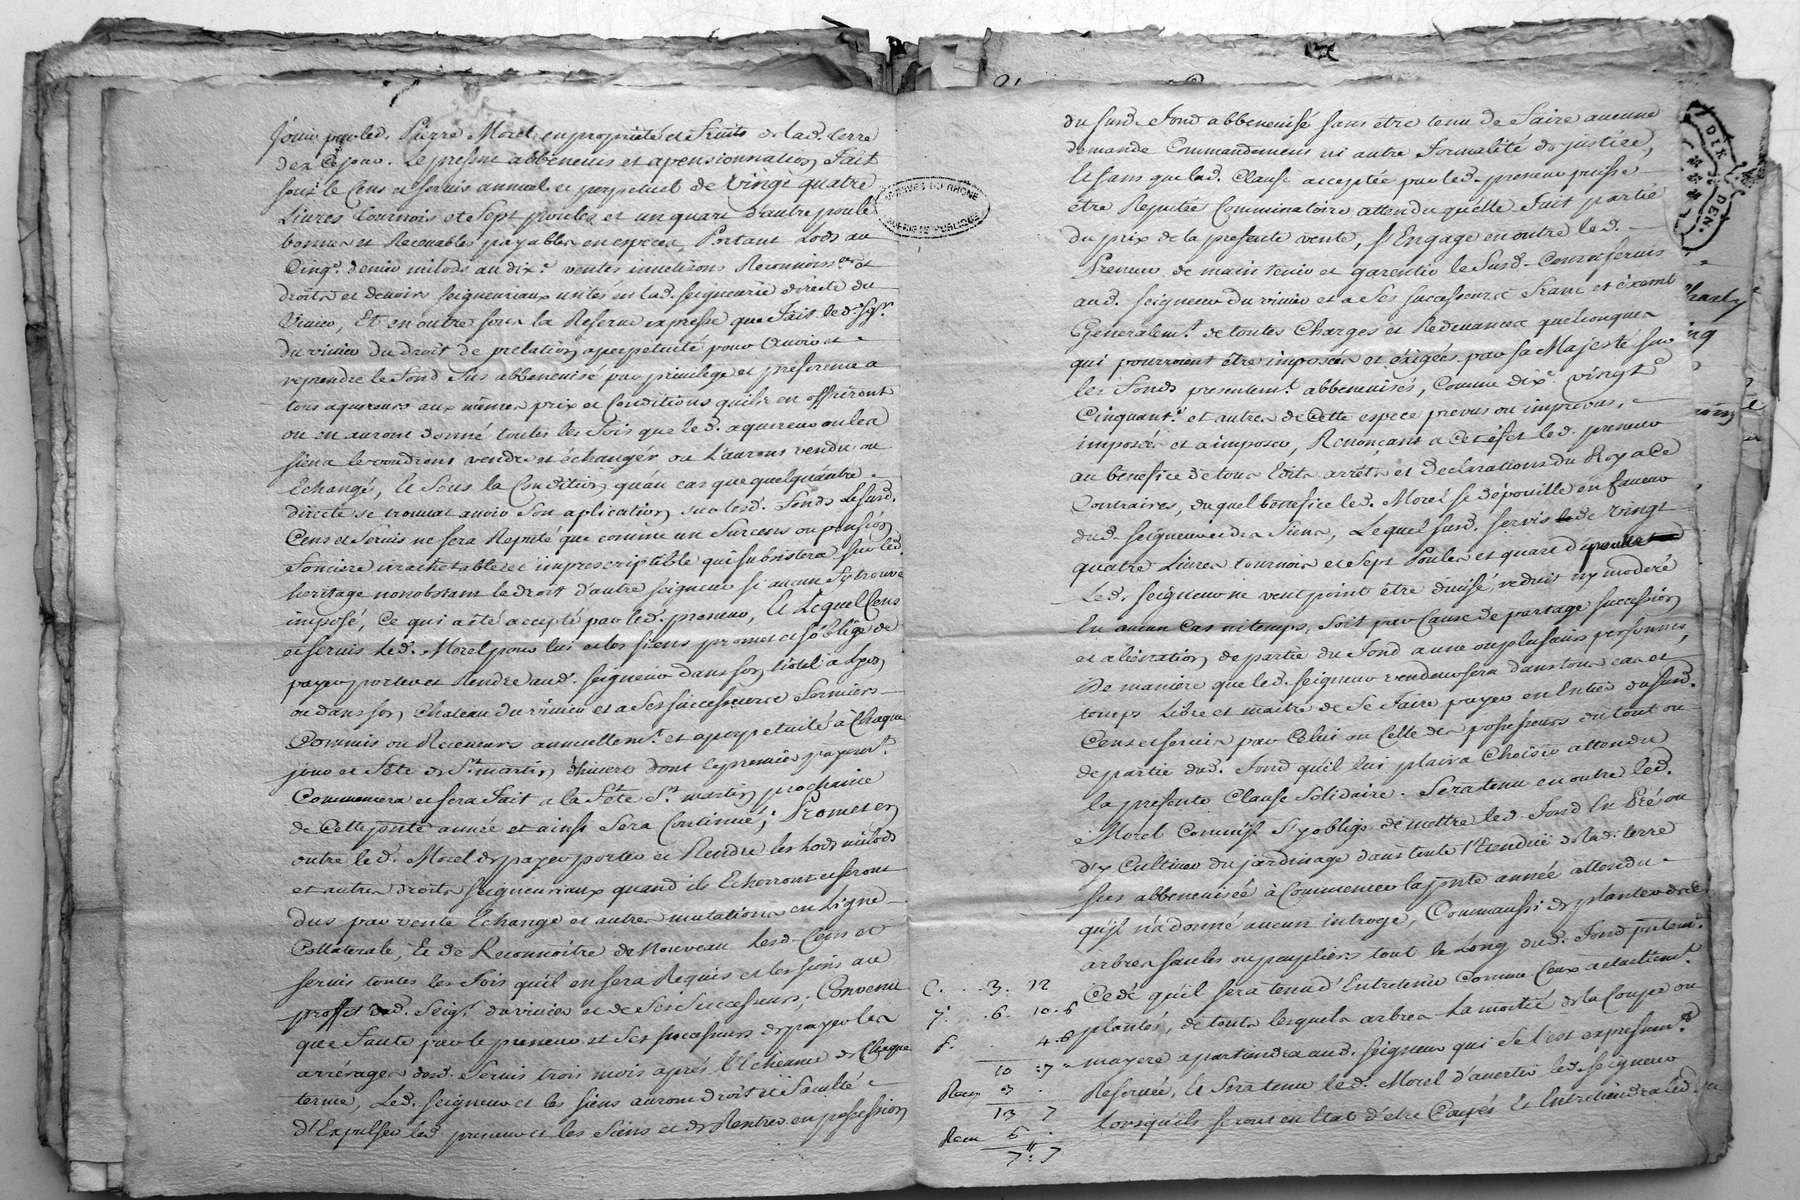 Jouir par led. Pierre Morel en propriété et fruits de lad. terre
dez Cejour. Le present abbenevis et apensionnation, fait
sous le Cens et servis annuel et perpetuel de vingt quatre
Livres tournois et sept poules et un quart d'autre poule
bonnes et Recevables payables en especes, Portant Lods au
Cinq.e denier milods au dix.e ventes Reconnois.ces et
droits et devoirs seigneuriaux usités en lad. seigneurie directe du
Vivier, Et en outre sous la Reserve expresse que fait led. sg.r
du vivier du droit de prelation, a perpetuité pour avoir et
reprendre le fond sus abbenevisé par privilege et preference a
tous aquereurs aux mêmes prix et Conditions quils en offriront
ou en auront donné toutes les fois que led. aquereur ou les
siens le voudront vendre et échanger ou l'auront vendu ou
Echangé, Et Sous la Condition, qu'au cas que quelqu'autre
directe se trouvat avoir son aplication, sur lesd. fonds Le susd.
Cens et Servis ne sera Reputé que comme un Surcens ou pension,
fonciere irrachetable et imprescriptible qui subsistera sur led.
heritage nonobstant le droit d'autre seigneur si aucun s'y trouve
imposé, Ce qui a été accepté par led. preneur, Et Lequel Cens
et servis Led. Morel pour lui et les siens promet et s'oblige de
payer porter et Rendre aud. seigneur dans son, hôtel à Lyon,
ou dans son, Chateau du vivier et a Ses successeurs fermiers
Commis ou Receveurs annuellem.t et a perpetuité à Chaque
jour et fête de S.t martin, d'hivert dont le premier payem.t
Commencera et sera fait a la fête S.t martin prochaine
de Cette pnte année et ainsy Sera Continué; Promet en
outre led. Morel de payer porter et Rendre les lods milods
et autres droits seigneuriaux quand ils Echerront et seront
dus par vente Echange et autres mutations en Ligne
Collaterale, Et de Reconnoitre de Nouveau lesd. Cens et
servis toutes les fois qu'il en sera Requis et les siens au
proffit dud. Seig.r du vivier et de Ses Successeurs; Convenu
que faute par le preneur et ses successeurs de payer les
arrérages dud. servis trois mois après l'Echeance de Chaque
terme, Led. seigneur et les siens auront droit et faculté
d'Expulser led. preneur et les Siens et de Rentrer en possession,
ARCHIVES DU RHONE
du susd. fond abbenevisé sans être tenu de faire aucune
demande Commandement ni autre formalité de justice,
Et sans que lad. Clause acceptée par led. preneur puisse
être Reputée Comminatoire attendu qu'elle fait partie
du prix de la presente vente, s'Engage en outre led.
Preneur de maintenir et garentir le susd. Cens et servis
aud. seigneur du vivier et a Ses successeurs franc et éxemt
Generalem.t de toutes Charges et Redevances quelconques
qui pourroient être imposées et éxigées par sa Majesté sur
les fonds presentem.t abbenevisés, Comme dix.e vingt.e
Cinquant.e et autres de Cette espece prevus ou imprevus,
imposés et a imposer, Renonçant a Cet éfet led. preneur
au benefice de tous Edits arrêts et declarations du Roy a Ce
Contraires, duquel benefice led. Morel se dépouille en faveur
dud. seigneur et des Siens, Lequel susd. servis de vingt
quatre Livres tournois et Sept Poules et quart
Led. seigneur ne veut point être divisé, reduit ny moderé
En aucun Cas ni temps, soit par Cause de partage succession,
et alienation, de partie du fond a une ou plusieurs personnes,
De maniere que led. seigneur vendeur sera dans tous cas et
temps Libre et maitre de Se faire payer en Entier du susd.
Cens et servis par Celui ou Celle des possesseurs du tout ou
de partie dud. fond qu'il lui plaira Choisir attendu
la presente Clause Solidaire. Sera tenu en outre led.
Morel Comm'il s'y oblige de mettre led. fond En Pré ou
d'y Cultiver du jardinage dans toute l'Etendue de lad. terre
sus abbenevisée à Commencer la pnte année attendu
qu'il n'a donné aucun introge, Comm'aussi de planter des
arbres saules ou peupliers tout le Long dud. fond pntem.t
Cedé qu'il sera tenu d'Entretenir Comme Ceux actuellem.t
plantés, de touts lesquels arbres La moitié de la Coupe ou
mayere apartiendra aud. seigneur qui se l'est expressem.t
Reservée, Et Sera tenu led. Morel d'avertir led. seigneur
Lorsqu'ils seront en Etat d'etre Coupés Et Entretiendra led.
DIX DEN.
C. 3. 12
6. 10. 6
4. 6
10 :7
3
13 7
6
7 :: 7